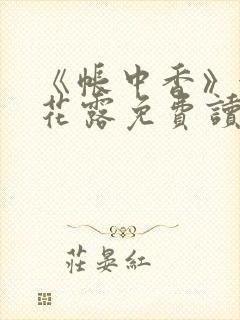 《帳中香》
花露免費讀
莊晏紅